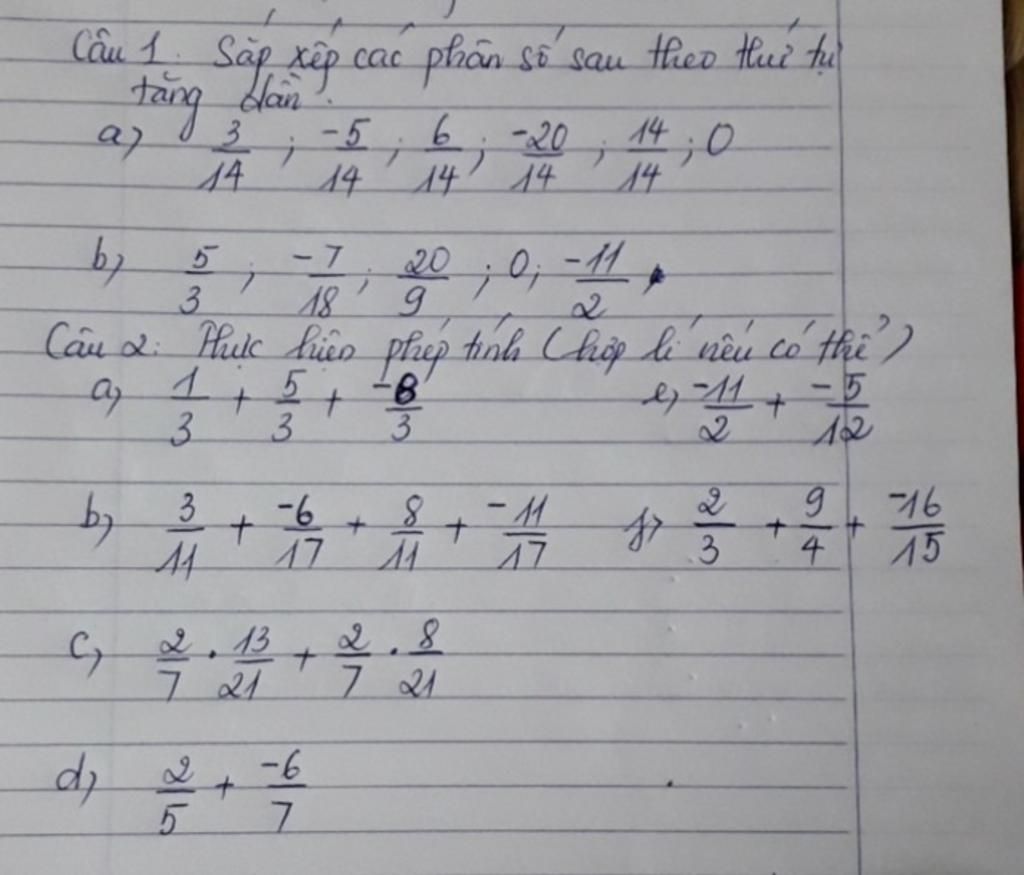 Câu 1. Sắp xếp các phân số sau theo thứ tự
tăng dần.
a) 3/14 ; -5/14 ; 6/14 ; -20/14 ; 14/14 ; 0
b) 5/3 ; -7/18 ; 20/9 ; 0 ; -11/2
Câu 2: Thực hiện phép tính (hợp lí nếu có thể)
a) 1/3 + 5/3 + -8/3 e) -11/2 + -5/12
b) 3/11 + -6/17 + 8/11 + -11/17 f) 2/3 + 9/4 + -16/15
c) 2/7 . 13/21 + 2/7 . 8/21
d) 2/5 + -6/7